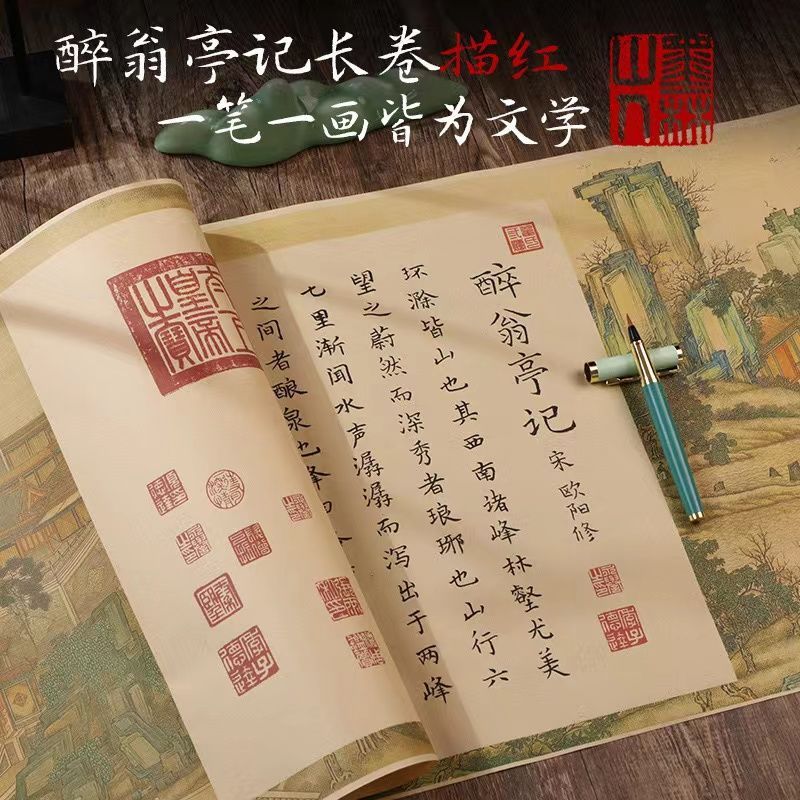 醉翁亭记长卷描红
一笔一画皆为文学
醉翁亭记
宋 欧阳修
环滁皆山也其西南诸峰林壑尤美
望之蔚然而深秀者琅琊也山行六
七里渐闻水声潺潺而泻出于两峰
之间者酿泉也峰回
皇帝
之寶